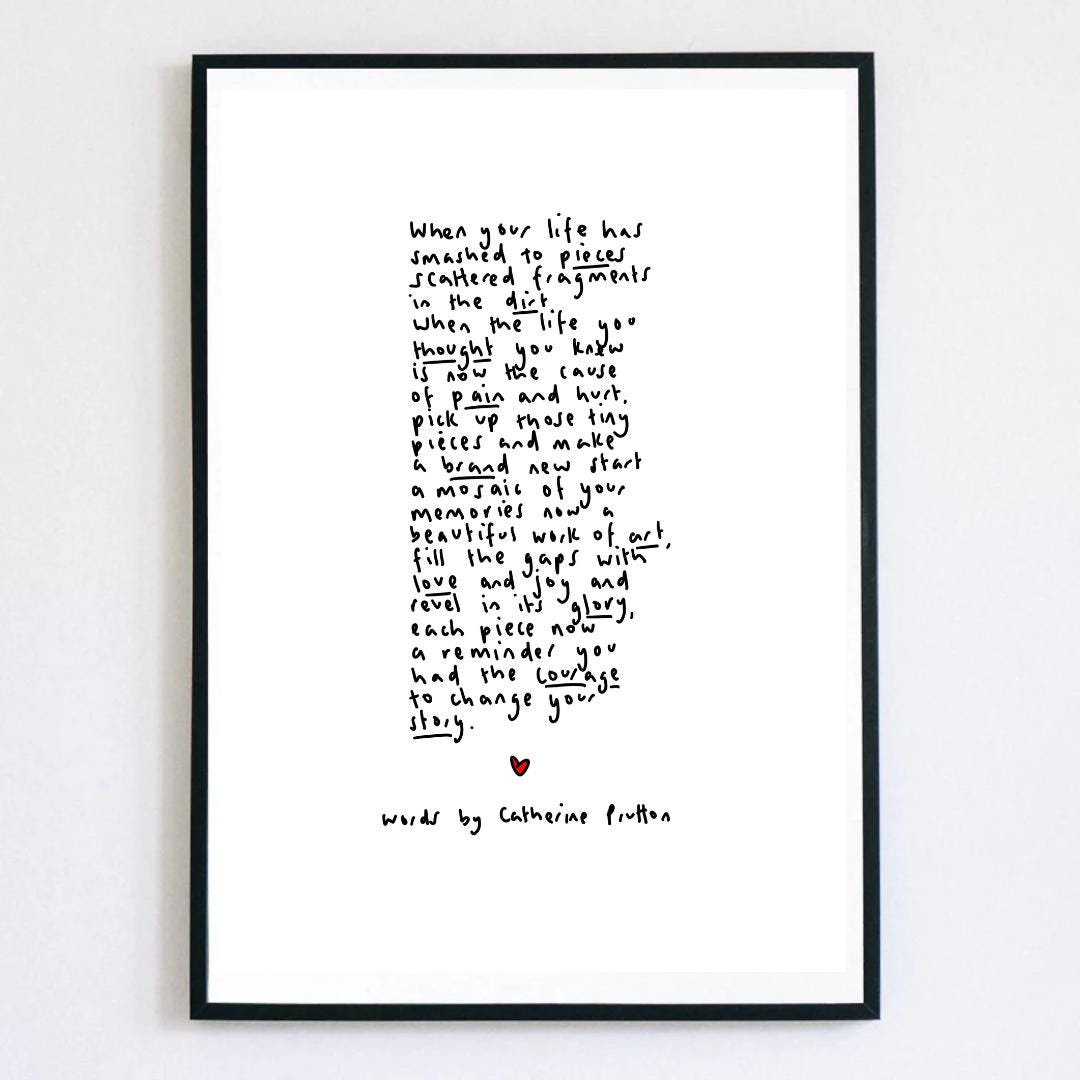 When your life has
smashed to pieces
scattered fragments
in the dirt.
When the life you
thought you knew
is now the cause
of pain and hurt,
pick up those tiny
pieces and make
a brand new start
a mosaic of your
memories now a
beautiful work of art,
fill the gaps with
love and joy and
revel in its glory,
each piece now
a reminder you
had the courage
to change your
story.
words by Catherine Prutton